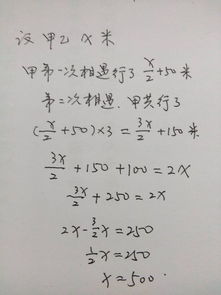 设甲乙x米
甲第一次相遇行了x/2+50米
第二次相遇.甲共行了
(x/2+50)×3=3x/2+150米
3x/2+150+100=2x
3x/2+250=2x
2x-3/2x=250
1/2x=250
x=500.